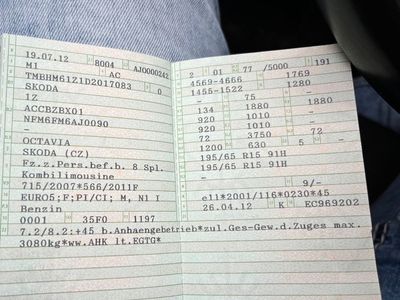 19.07.12 8004 AJO000242
M1 AC
TMBHM61Z1D2017083 0
SKODA
1Z
ACCBZBX01
NFM6FM6AJ0090
–
OCTAVIA
SKODA (CZ)
Fz.z.Pers.bef.b. 8 Spl.
Kombilimousine
715/2007*566/2011F
EURO5;F;PI/CI; M, N1 I
Benzin
0001 35F0 1197
7.2/8.2:+45 b.Anhaengebetrieb*zul.Ges-Gew.d.Zuges max.
3080kg*ww.AHK lt.EGTG*
2 01 77 /5000 191
4569-4666 1769
1455-1522 1280
– 75 –
134 1880 1880
920 1010 –
920 1010 –
72 3750 72
1200 630 5
195/65 R15 91H
195/65 R15 91H
–
9/–
e11*2001/116*0230*45
26.04.12 K EC969202